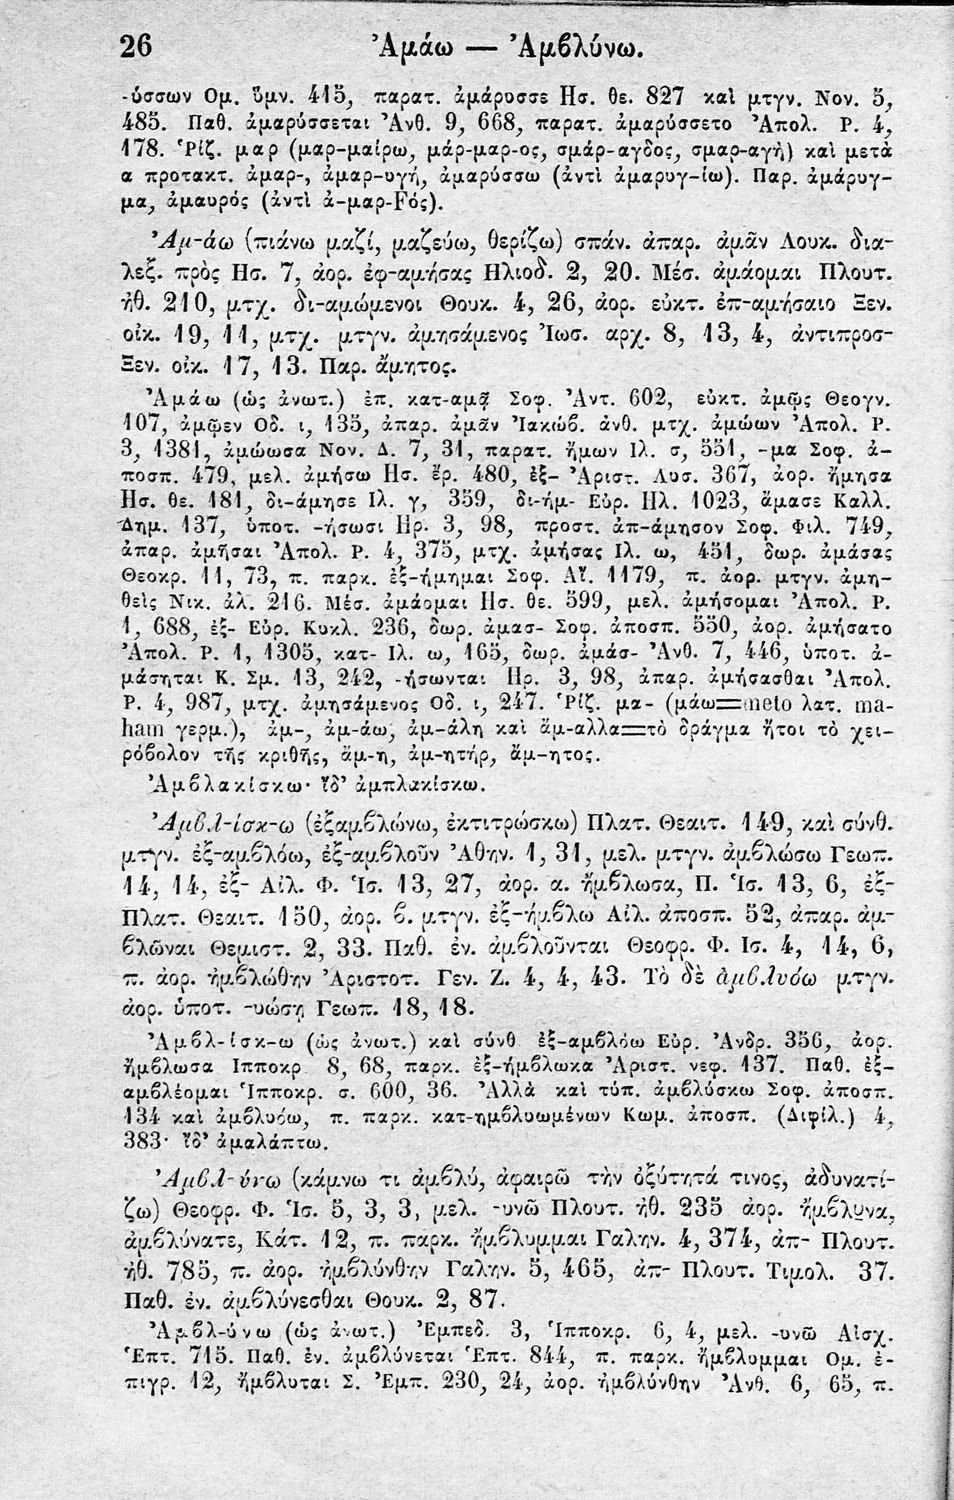 26 Ἀμάω — Ἀμβλύνω.
-ύσσων Ομ. ὕμν. 415, παρατ. ἀμάρυσσε Ησ. θε. 827 καὶ μτγν. Νον. 5,
485. Παθ. ἀμαρύσσεται Ἀνθ. 9, 668, παρατ. ἀμαρύσσετο Ἀπολ. Ρ. 4,
178. Ῥίζ. μαρ (μαρ-μαίρω, μάρ-μαρ-ος, σμάρ-αγδος, σμαρ-αγὴ) καὶ μετὰ
α προτακτ. ἀμαρ-, ἀμαρ-υγή, ἀμαρύσσω (ἀντὶ ἀμαρυγ-ίω). Παρ. ἀμάρυγ-
μα, ἀμαυρός (ἀντὶ ἀ-μαρ-Fός).
Ἀμ-άω (πιάνω μαζί, μαζεύω, θερίζω) σπάν. ἀπαρ. ἀμᾶν Λουκ. δια-
λεξ. πρὸς Ησ. 7, ἀορ. ἐφ-αμήσας Ηλιοδ. 2, 20. Μέσ. ἀμάομαι Πλουτ.
ἠθ. 210, μτχ. δι-αμώμενοι Θουκ. 4, 26, ἀορ. εὐκτ. ἐπ-αμήσαιο Ξεν.
οἰκ. 19, 11, μτχ. μτγν. ἀμησάμενος Ἰωσ. αρχ. 8, 13, 4, ἀντιπροσ-
Ξεν. οἰκ. 17, 13. Παρ. ἄμητος.
Ἀμάω (ὡς ἀνωτ.) ἐπ. κατ-αμᾷ Σοφ. Ἀντ. 602, εὐκτ. ἀμῷς Θεογν.
107, ἀμῷεν Οδ. ι, 135, ἀπαρ. ἀμᾶν Ἰακώβ. ἀνθ. μτχ. ἀμώων Ἀπολ. Ρ.
3, 1381, ἀμώωσα Νον. Δ. 7, 31, παρατ. ἤμων Ιλ. σ, 551, -μα Σοφ. ἀ-
ποσπ. 479, μελ. ἀμήσω Ησ. ἔρ. 480, ἐξ- Ἀριστ. Λυσ. 367, ἀορ. ἤμησα
Ησ. θε. 181, δι-άμησε Ιλ. γ, 359, δι-ήμ- Εὐρ. Ηλ. 1023, ἄμασε Καλλ.
Δημ. 137, ὑποτ. -ήσωσι Ηρ. 3, 98, προστ. ἀπ-άμησον Σοφ. Φιλ. 749,
ἀπαρ. ἀμῆσαι Ἀπολ. Ρ. 4, 375, μτχ. ἀμήσας Ιλ. ω, 451, δωρ. ἀμάσας
Θεοκρ. 11, 73, π. παρκ. ἐξ-ήμημαι Σοφ. Αἴ. 1179, π. ἀορ. μτγν. ἀμη-
θεὶς Νικ. ἀλ. 216. Μέσ. ἀμάομαι Ησ. θε. 599, μελ. ἀμήσομαι Ἀπολ. Ρ.
1, 688, ἐξ- Εὐρ. Κυκλ. 236, δωρ. ἀμασ- Σοφ. ἀποσπ. 550, ἀορ. ἀμήσατο
Ἀπολ. Ρ. 1, 1305, κατ- Ιλ. ω, 165, δωρ. ἀμάσ- Ἀνθ. 7, 446, ὑποτ. ἀ-
μάσηται Κ. Σμ. 13, 242, -ήσωνται Ηρ. 3, 98, ἀπαρ. ἀμήσασθαι Ἀπολ.
Ρ. 4, 987, μτχ. ἀμησάμενος Οδ. ι, 247. Ῥίζ. μα- (μάω=meto λατ. ma-
ham γερμ.), ἀμ-, ἀμ-άω, ἀμ-άλη καὶ ἄμ-αλλα=τὸ δράγμα ἤτοι τὸ χει-
ρόβολον τῆς κριθῆς, ἄμ-η, ἀμ-ητήρ, ἄμ-ητος.
Ἀμβλακίσκω· ἴδ' ἀμπλακίσκω.
Ἀμβλ-ίσκ-ω (ἐξαμβλώνω, ἐκτιτρώσκω) Πλατ. Θεαιτ. 149, καὶ σύνθ.
μτγν. ἐξ-αμβλόω, ἐξ-αμβλοῦν Ἀθην. 1, 31, μελ. μτγν. ἀμβλώσω Γεωπ.
14, 14, ἐξ- Αἰλ. Φ. Ἱσ. 13, 27, ἀορ. α. ἤμβλωσα, Π. Ἱσ. 13, 6, ἐξ-
Πλατ. Θεαιτ. 150, ἀορ. β. μτγν. ἐξ-ήμβλω Αἰλ. ἀποσπ. 52, ἀπαρ. ἀμ-
βλῶναι Θεμιστ. 2, 33. Παθ. ἐν. ἀμβλοῦνται Θεοφρ. Φ. Ισ. 4, 14, 6,
π. ἀορ. ἠμβλώθην Ἀριστοτ. Γεν. Ζ. 4, 4, 43. Τὸ δὲ ἀμβλυόω μτγν.
ἀορ. ὑποτ. -υώσῃ Γεωπ. 18, 18.
Ἀμβλ-ίσκ-ω (ὡς ἀνωτ.) καὶ σύνθ ἐξ-αμβλόω Εὐρ. Ἀνδρ. 356, ἀορ.
ἤμβλωσα Ιπποκρ 8, 68, παρκ. ἐξ-ήμβλωκα Ἀριστ. νεφ. 137. Παθ. ἐξ-
αμβλέομαι Ἱπποκρ. σ. 600, 36. Ἀλλὰ καὶ τύπ. ἀμβλύσκω Σοφ. ἀποσπ.
134 καὶ ἀμβλυόω, π. παρκ. κατ-ημβλυωμένων Κωμ. ἀποσπ. (Διφίλ.) 4,
383· ἴδ' ἀμαλάπτω.
Ἀμβλ-ύνω (κάμνω τι ἀμβλύ, ἀφαιρῶ τὴν ὀξύτητά τινος, ἀδυνατί-
ζω) Θεοφρ. Φ. Ἱσ. 5, 3, 3, μελ. -υνῶ Πλουτ. ἠθ. 235 ἀορ. ἤμβλυνα,
ἀμβλύνατε, Κάτ. 12, π. παρκ. ἤμβλυμμαι Γαλην. 4, 374, ἀπ- Πλουτ.
ἠθ. 785, π. ἀορ. ἠμβλύνθην Γαλην. 5, 465, ἀπ- Πλουτ. Τιμολ. 37.
Παθ. ἐν. ἀμβλύνεσθαι Θουκ. 2, 87.
Ἀμβλ-ύνω (ὡς ἀνωτ.) Ἐμπεδ. 3, Ἱπποκρ. 6, 4, μελ. -υνῶ Αἰσχ.
Ἑπτ. 715. Παθ. ἐν. ἀμβλύνεται Ἑπτ. 844, π. παρκ. ἤμβλυμμαι Ομ. ἐ-
πιγρ. 12, ἤμβλυται Σ. Ἐμπ. 230, 24, ἀορ. ἠμβλύνθην Ἀνθ. 6, 65, π.